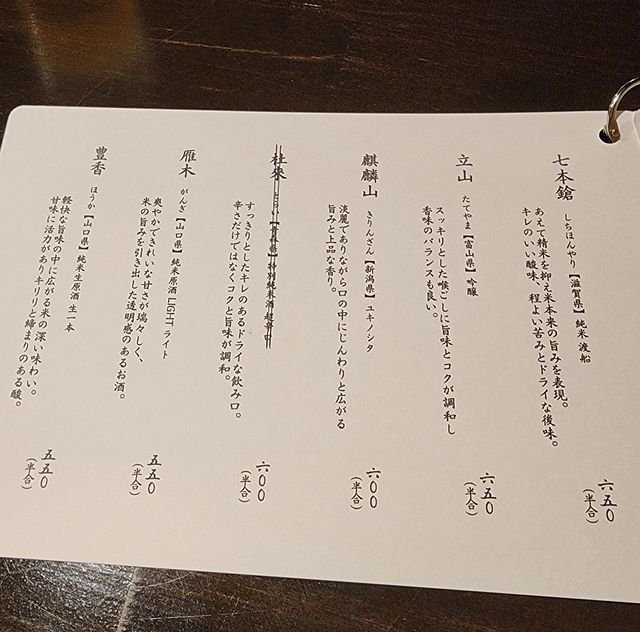 七本鎗
しちほんやり【滋賀県】純米 渡船
あえて精米を抑え米本来の旨みを表現。
キレのいい酸味、程よい苦みとドライな後味。
六五〇
(半合)
立山
たてやま【富山県】吟醸
スッキリとした喉ごしに旨味とコクが調和し
香味のバランスも良い。
六五〇
(半合)
麒麟山
きりんざん【新潟県】ユキノシタ
淡麗でありながら口の中にじんわりと広がる
旨みと上品な香り。
六〇〇
(半合)
杜來
【青森県】特別純米酒 超辛口
すっきりとしたキレのあるドライな飲み口。
辛さだけではなくコクと旨味が調和。
六〇〇
(半合)
雁木
がんぎ【山口県】純米原酒 LIGHT ライト
爽やかできれいな甘さが瑞々しく、
米の旨みを引き出した透明感のあるお酒。
五五〇
(半合)
豊香
ほうか【山口県】純米生原酒 生一本
軽快な旨味の中に広がる米の深い味わい。
甘味に活力がありキリリと締まりのある酸。
五五〇
(半合)